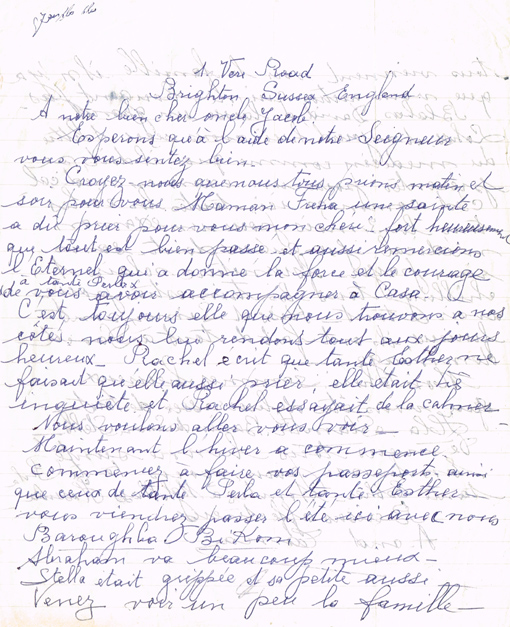 1 Vere Road
Brighton, Sussex England
A notre bien cher oncle Jacob
Esperons qu'à l'aide de notre Seigneur
vous vous sentez bien.
Croyez nous que nous tous prions matin et
soir pour vous. Maman Freha une sainte
a dû prier pour vous mon cheri - fort heureusement
que tout est bien passe et aussi remercions
l'Eternel qui a donne la force et le courage
à tante Perla x
de vous avoir accompagner à Casa.
C'est toujours elle que nous trouvons a nos
côtés nous lui rendons tous aux jours
heureux - Rachel ecrit que tante Esther ne
faisait qu'elle aussi prier, elle etait tres
inquiète et Rachel essayait de la calmer -
Nous voulons aller vous voir -
Maintenant l'hiver a commence.
commencer à faire vos passeports ainsi
que ceux de tante Perla et tante Esther -
vous viendrez passer l'été ici avec nous
Baroughba Bi Kom
Abraham va beaucoup mieux -
Stella etait grippée et sa petite aussi
Venez voir un peu la famille -